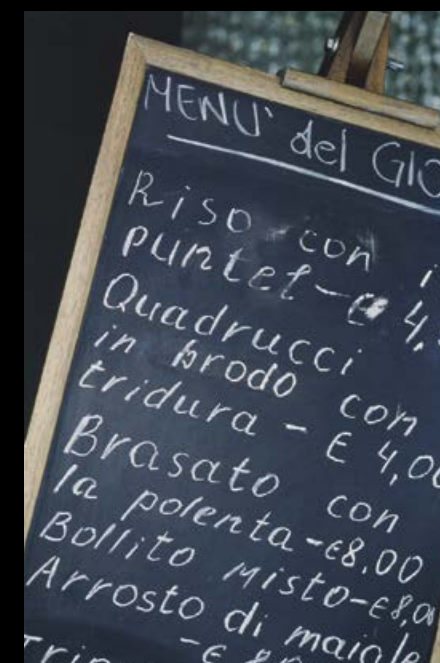 MENU' del GIO
Riso con i
puntel-€ 4,
Quadrucci
in brodo con
tridura - € 4,00
Brasato con
la polenta-€8,00
Bollito Misto-€8,00
Arrosto di maiale
-€
Trip